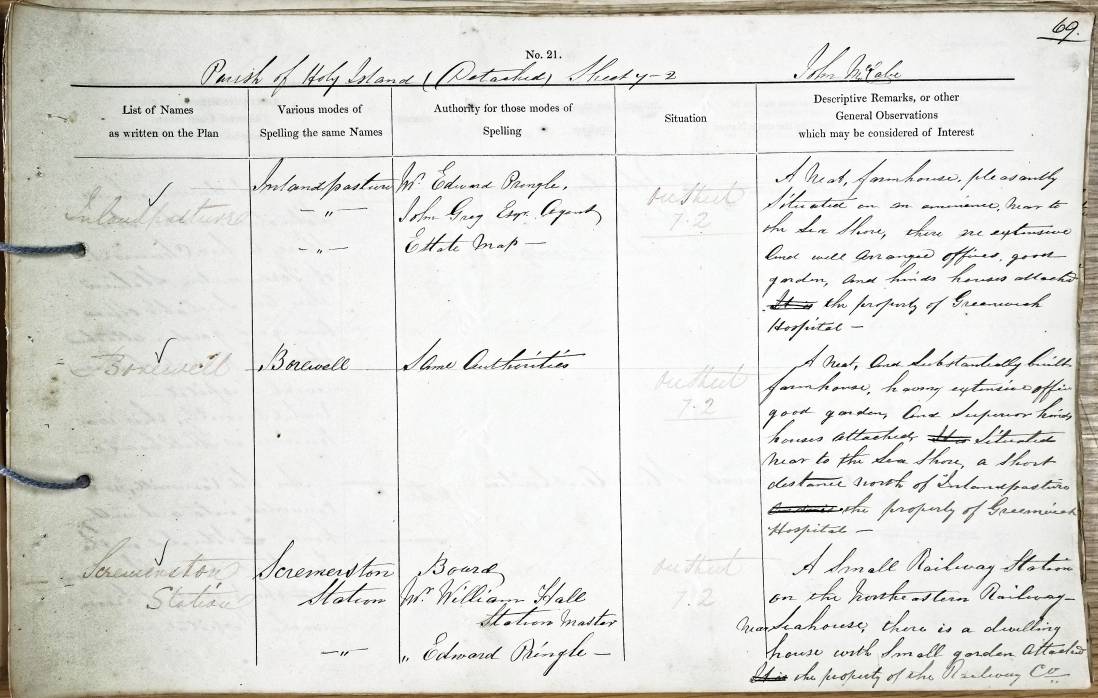 69.
No. 21.
Parish of Holy Island (Detached) Sheet 7-2 John McCabe
List of Names as written on the Plan
Various modes of Spelling the same Names
Authority for those modes of Spelling
Situation
Descriptive Remarks, or other General Observations which may be considered of Interest
Inlandpasture
Inlandpasture
-"-
-"-
Mr. Edward Pringle,
John Grey Esqr. Agent
Estate Map —
On Sheet
7.2
A Neat, farmhouse, pleasantly
Situated on an eminence, Near to
the Sea Shore, there are extensive
And well arranged offices, good
garden, and hinds houses attached
It is the property of Greenwich
Hospital —
Borewell
Borewell
Same Authorities
On Sheet
7.2
A Neat, And Substantially built
farmhouse, having extensive offic
good garden, And Superior hinds
houses attached, It is Situated
Near to the Sea Shore, a Short
distance North of Inlandpasture
the property of Greenwich
Hospital —
Scremerston
Station
Scremerston
Station
-"-
Board
Mr. William Hall
Station Master
" Edward Pringle —
On Sheet
7.2
A Small Railway Station
on the Northeastern Railway —
Near Seahouse, there is a dwelling
house with Small garden Attached
It is the property of the Railway Co.